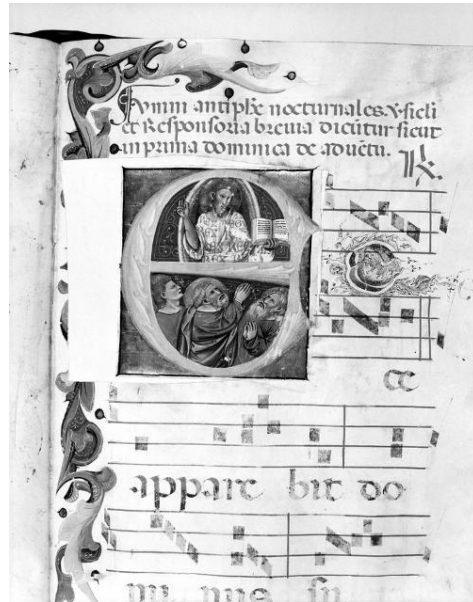 Ymni antiphe nocturnales. Vsicli
et Responsoria breuia dicūtur sicut
in prima dominica de aduētu. R
E C
ce
appare bit do
mi nus su